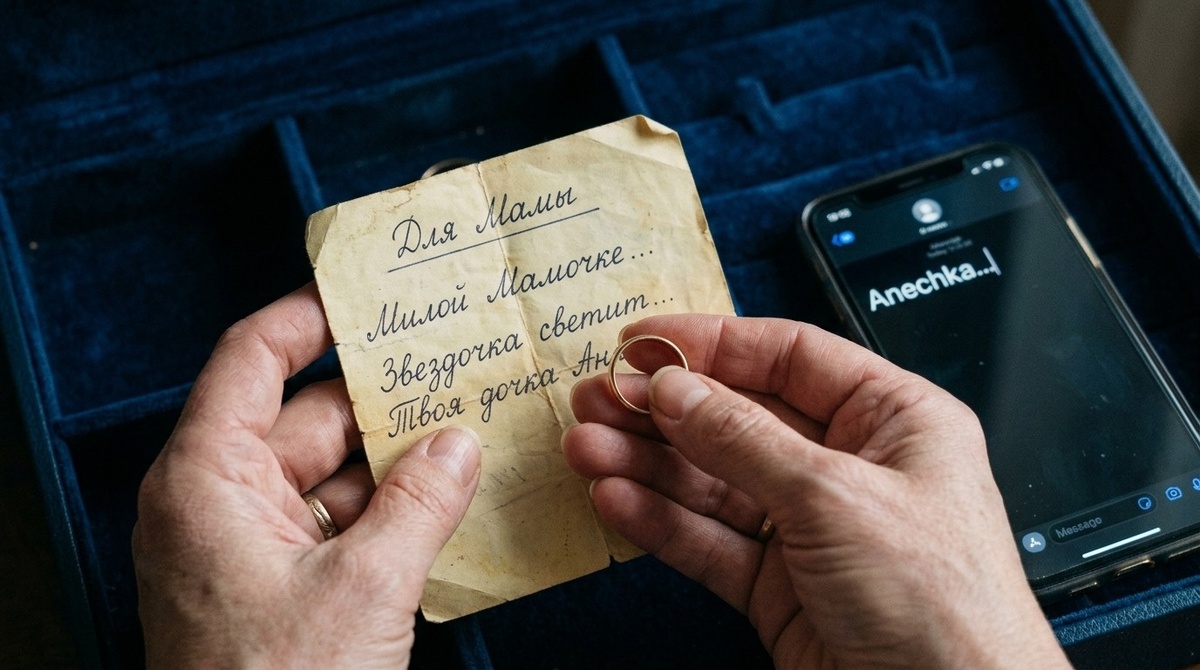 Для Мамы
Милой Мамочке...
Звездочка светит...
Твоя дочка Ан
Anechka...
Message